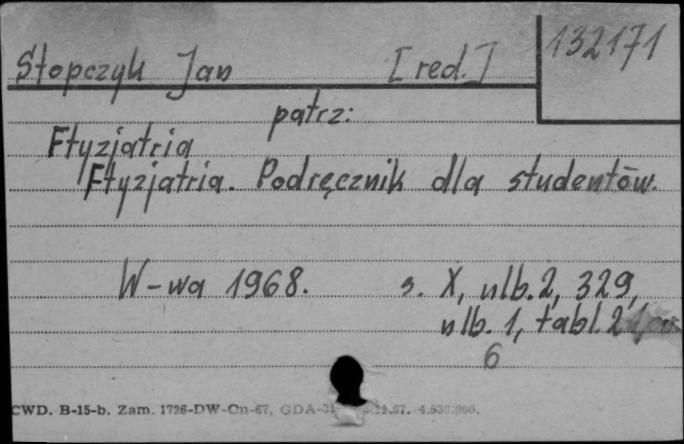 Stopczyk Jan [red.] 132171
patrz:
Ftyzjatria
Ftyzjatria. Podręcznik dla studentów.
W-wa 1968. s. X, nlb. 2, 329,
nlb. 1, tabl. 2
6
CWD. B-15-b. Zam. 1726-DW-Cn-67. GDA-31 4.630.000.